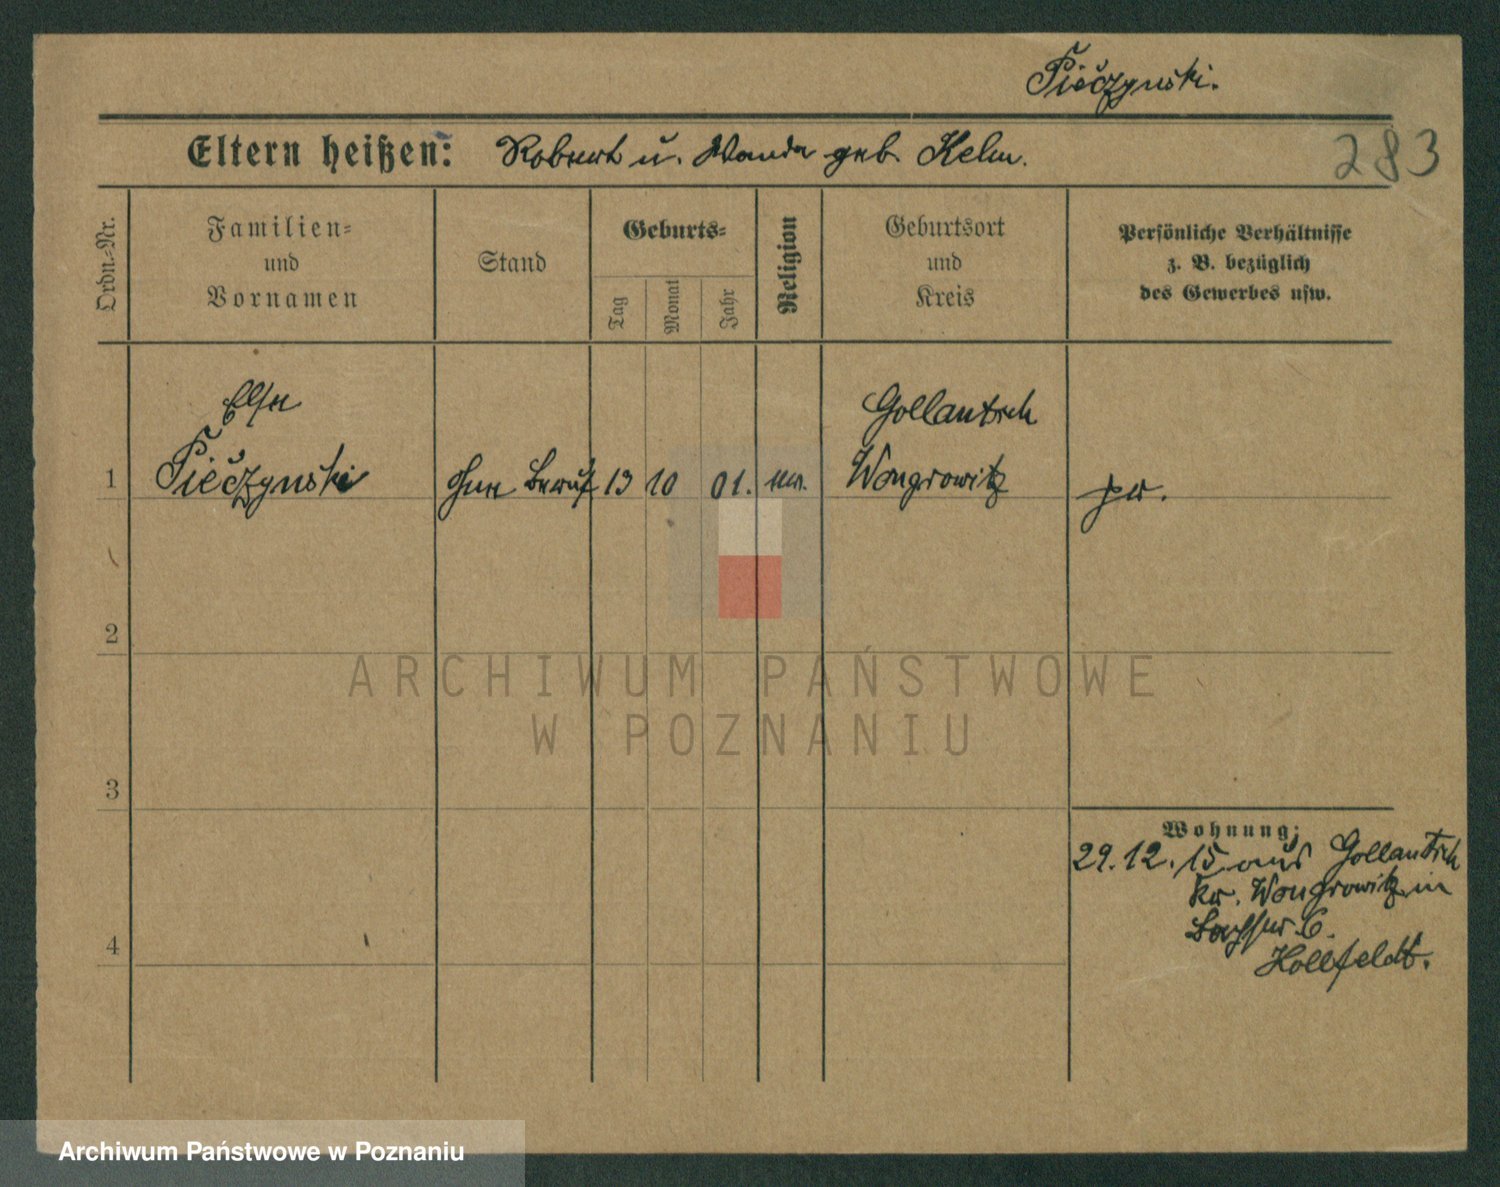 Pieczynski.
Eltern heißen: Robert u. Wanda geb. Kelm.
283
Ordn.-Nr.
Familien-
und
Vornamen
Stand
Geburts-
Tag
Monat
Jahr
Religion
Geburtsort
und
Kreis
Persönliche Verhältnisse
z. B. bezüglich
des Gewerbes usw.
Else
Gollantsch
1 Pieczynski ohne Beruf 13 10 01. Wongrowitz pr.
2
3
4
ARCHIWUM PAŃSTWOWE
W POZNANIU
Wohnung:
29.12.15 aus Gollantsch
Kr. Wongrowitz in
6.
Hollfeldt.
Archiwum Państwowe w Poznaniu